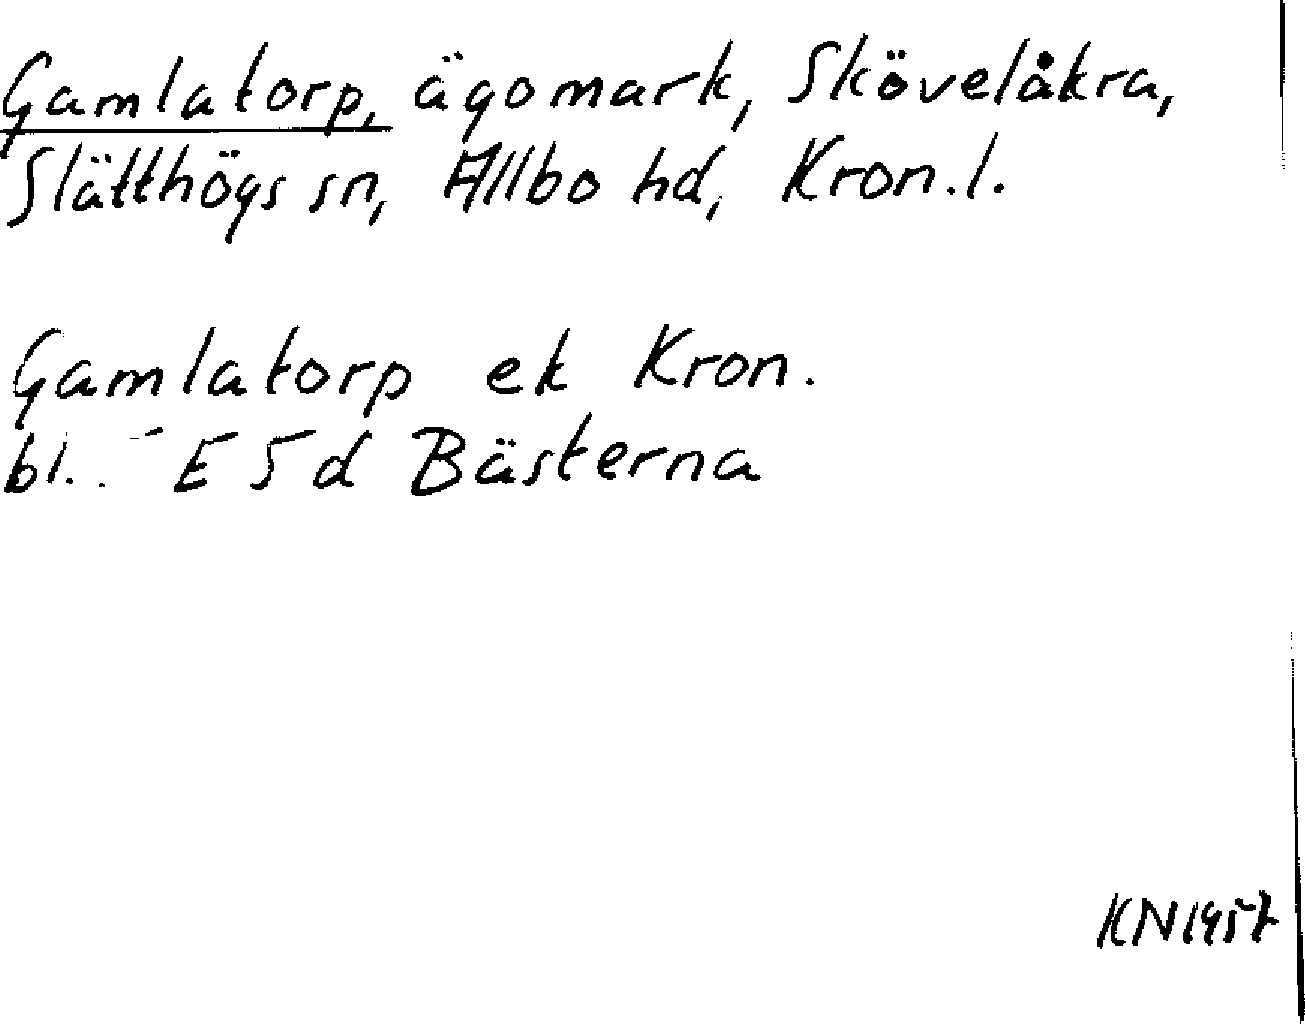 Gamlatorp, ägomark, Skövelåkra,
Slätthögs sn, Allbo hd, Kron.l.
Gamlatorp ek Kron.
bl. E 5 d Bästerna
KN 1957